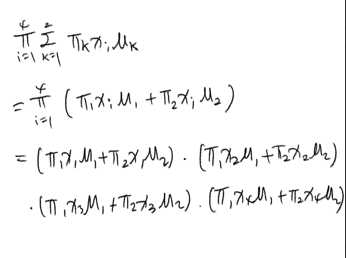 ∏_{i=1}^{4} Σ_{k=1}^{2} π_k x_i μ_k
= ∏_{i=1}^{4} (π_1 x_i μ_1 + π_2 x_i μ_2)
= (π_1 x_1 μ_1 + π_2 x_1 μ_2) · (π_1 x_2 μ_1 + π_2 x_2 μ_2)
· (π_1 x_3 μ_1 + π_2 x_3 μ_2) · (π_1 x_4 μ_1 + π_2 x_4 μ_2)